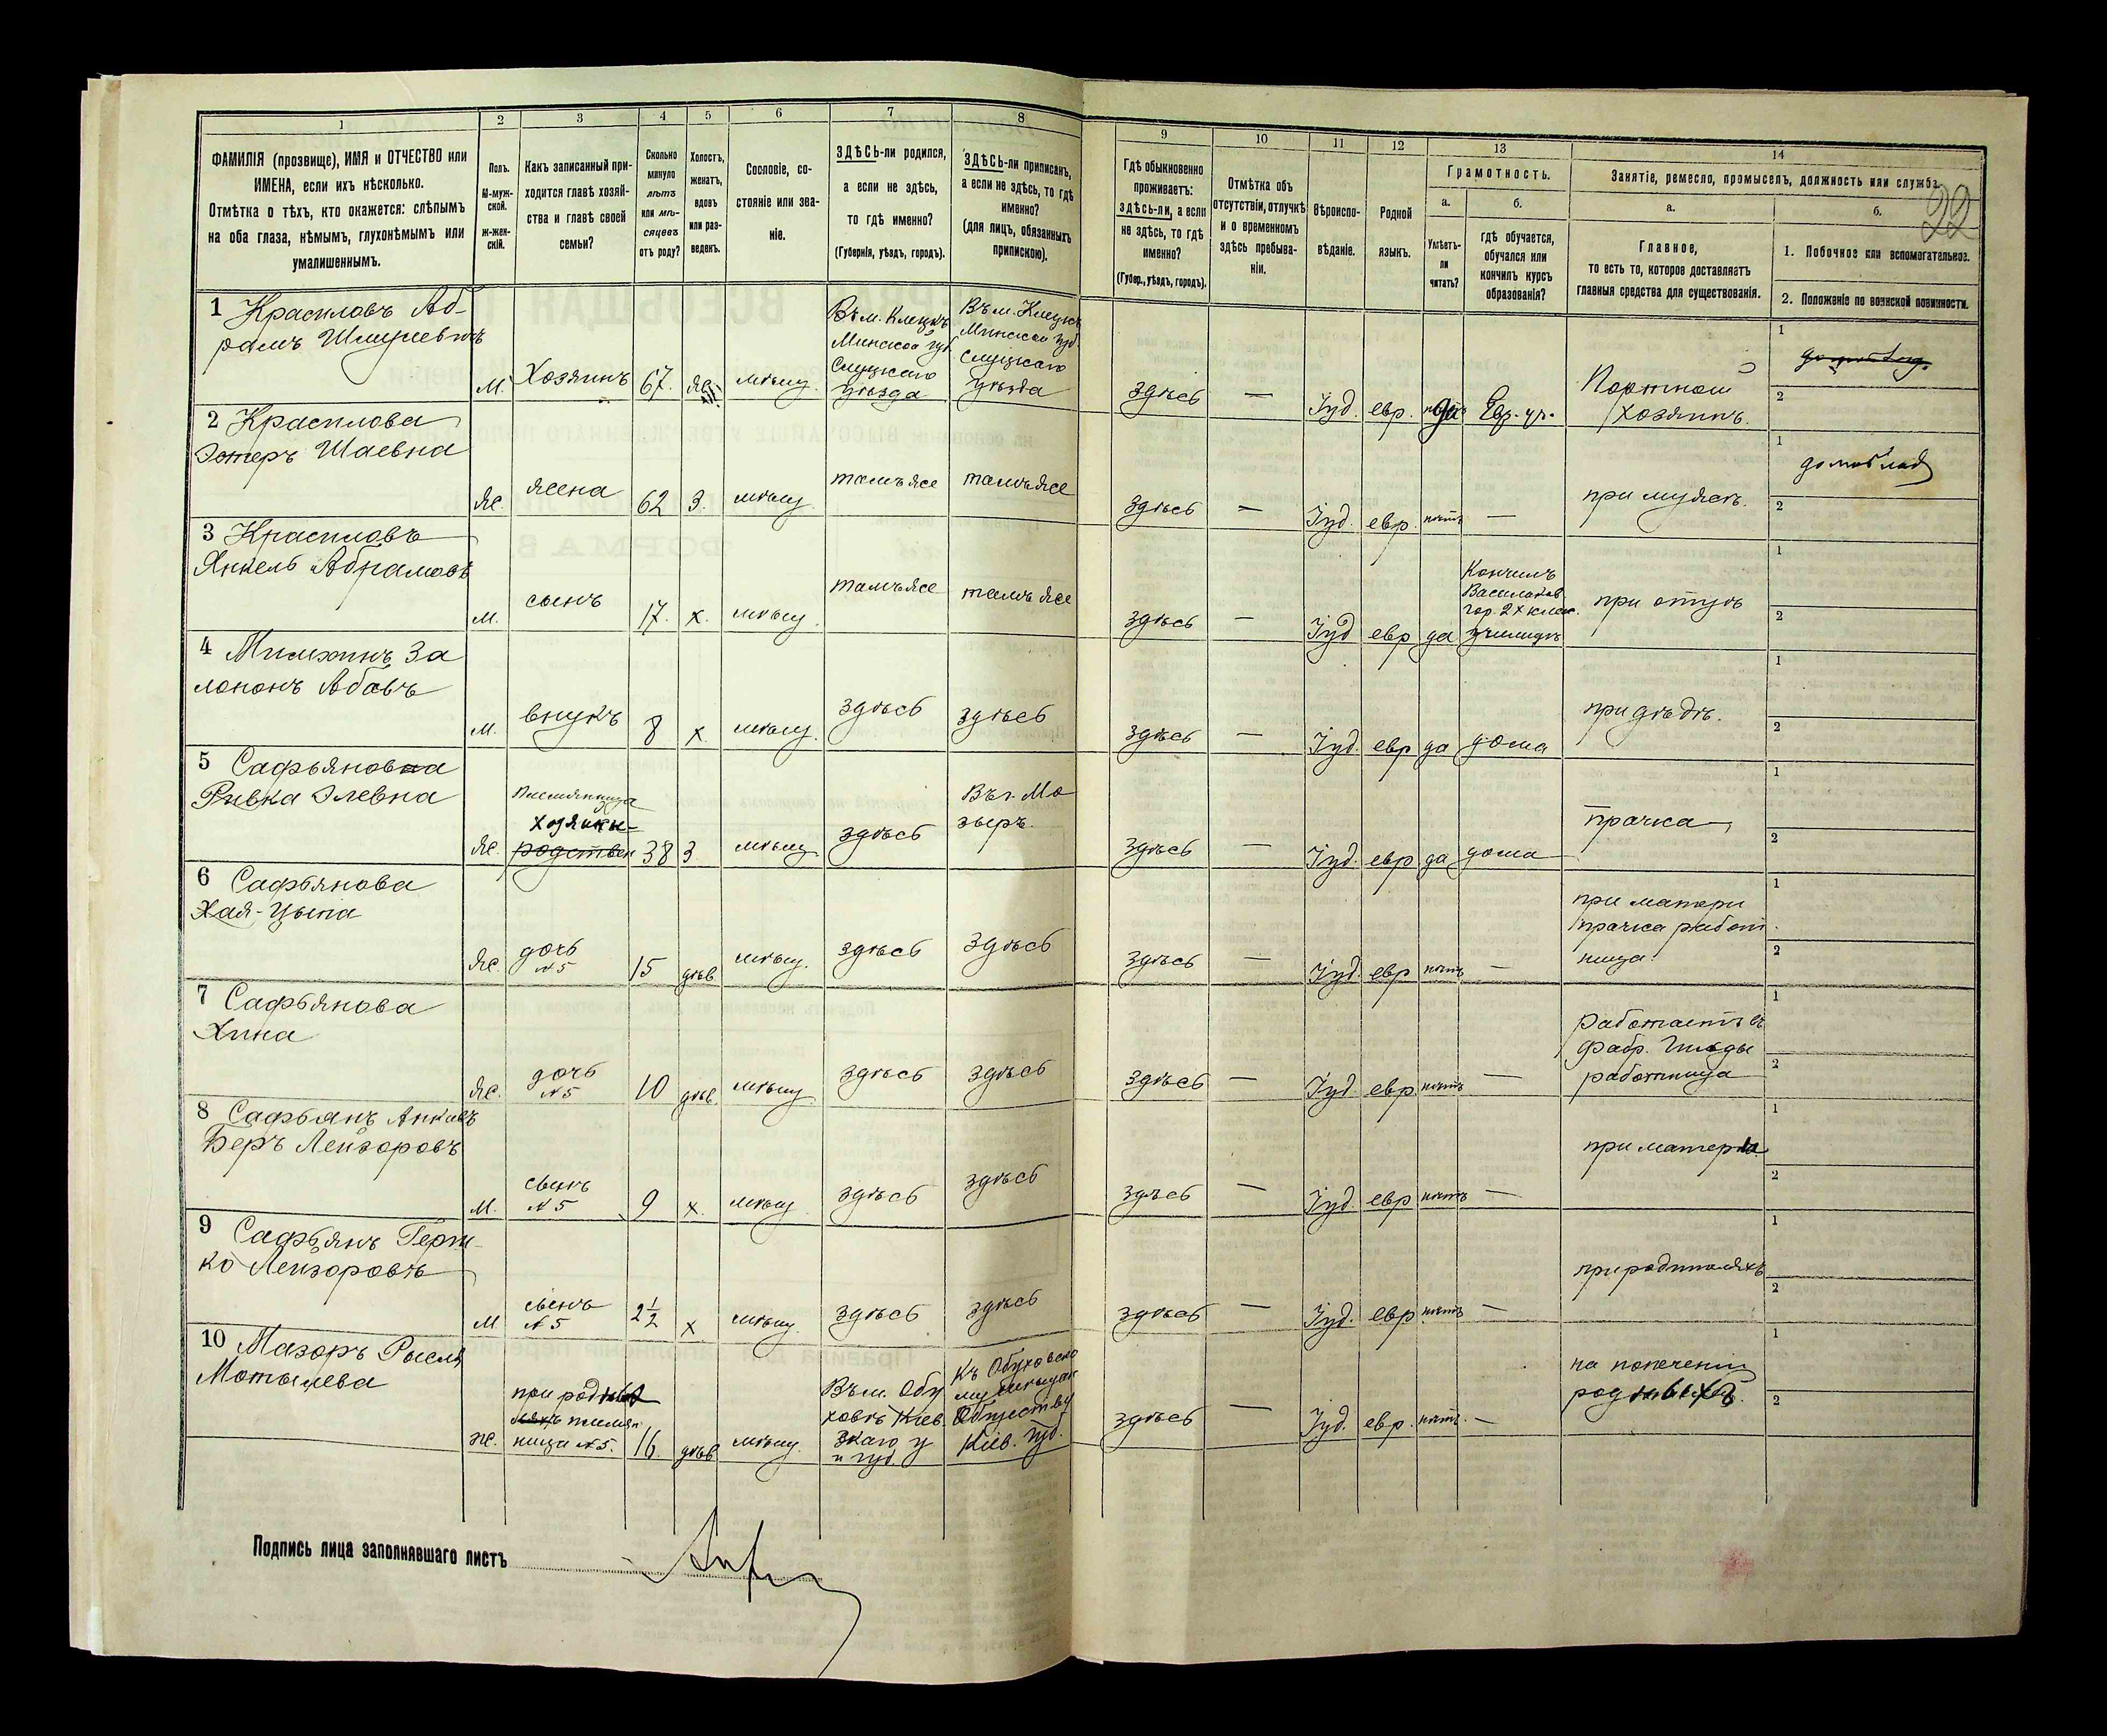 22
1
2
3
4
5
6
7
8
9
10
11
12
13
14
ФАМИЛІЯ (прозвище), ИМЯ и ОТЧЕСТВО или
ИМЕНА, если ихъ нѣсколько.
Отмѣтка о тѣхъ, кто окажется: слѣпымъ
на оба глаза, нѣмымъ, глухонѣмымъ или
умалишеннымъ.
Полъ.
М-муж-
ской.
Ж-жен-
скій.
Какъ записанный при-
ходится главѣ хозяй-
ства и главѣ своей
семьи?
Сколько
минуло
лѣтъ
или мѣ-
сяцевъ
отъ роду?
Холостъ,
женатъ,
вдовъ
или раз-
веденъ.
Сословіе, со-
стояніе или зва-
ніе.
ЗДѢСЬ-ли родился,
а если не здѣсь,
то гдѣ именно?
(Губернія, уѣздъ, городъ).
ЗДѢСЬ-ли приписанъ,
а если не здѣсь, то гдѣ
именно?
(для лицъ, обязанныхъ
припискою).
Гдѣ обыкновенно
проживаетъ:
здѣсь-ли, а если
не здѣсь, то гдѣ
именно?
(Губер., уѣздъ, городъ).
Отмѣтка объ
отсутствіи, отлучкѣ
и о временномъ
здѣсь пребыва-
ніи.
Вѣроиспо-
вѣданіе.
Родной
языкъ.
Грамотность.
а.
Умѣетъ-
ли
читать?
б.
гдѣ обучается,
обучался или
кончилъ курсъ
образованія?
Занятіе, ремесло, промыселъ, должность или служба.
а.
Главное,
то есть то, которое доставляетъ
главныя средства для существованія.
б.
1. Побочное или вспомогательное.
2. Положеніе по воинской повинности.
1 Красиловъ Аб-
рамъ Шмулевичъ
М. Хозяинъ 67. мѣщ.
Въ м. Клецкъ
Минской губ.
Слуцкаго
уѣзда
Въ м. Клецкъ
Минской губ.
Слуцкаго
уѣзда
здѣсь — Іуд. евр. да Евр. уч.
Портной
хозяинъ.
1
2
2 Красилова
Эстеръ Шаевна
Ж. жена 62 З. мѣщ. тамъ же тамъ же
здѣсь — Іуд. евр. нѣтъ — при мужѣ.
1
2
3 Красиловъ
Янкель Абрамовъ
М. сынъ 17. х. мѣщ. тамъ же тамъ же
здѣсь — Іуд евр да
Кончилъ
Васильков
гор. 2х клас.
училище
при отцѣ
1
2
4
лононъ Абавъ
М. внукъ 8 х. мѣщ. здѣсь здѣсь
здѣсь — Іуд. евр да дома при дѣдѣ.
1
2
5 Сафьянова
Ривка Элевна
Племянница
хозяина
родствен
Ж. 38 З мѣщ. здѣсь
Въ г. Мо
зырь.
здѣсь — Іуд. евр. да дома прачка
1
2
6 Сафьянова
Хая-Цыпа
Ж. дочь
№ 5
15 дѣв. мѣщ. здѣсь здѣсь
здѣсь — Іуд. евр нѣтъ —
при матери
прачка работ
ница
1
2
7 Сафьянова
Хина
Ж. дочь
№ 5
10 дѣв. мѣщ. здѣсь здѣсь
здѣсь — Іуд. евр. нѣтъ —
работаетъ въ
фабр. Гильды
работница
1
2
8 Сафьянъ
Беръ Лейзоровъ
М. сынъ
№ 5
9 х. мѣщ. здѣсь здѣсь
здѣсь — Іуд. евр нѣтъ — при матери
1
2
9 Сафьянъ Герш-
ко Лейзоровъ
М сынъ
№ 5
2½ х мѣщ. здѣсь здѣсь
здѣсь — Іуд. евр нѣтъ — при родителяхъ
1
2
10 Мазоръ Рысля
Мотылева
при род
племян
ница № 5.
ж. 16. дѣв мѣщ.
Въ м. Обу
ховѣ Кіев
скаго у
и губ.
Къ Обуховско
му мѣщан
Обществу
Кіев. губ.
здѣсь — Іуд. евр. нѣтъ. —
на попеченіи
родныхъ.
1
2
Подпись лица заполнявшаго листъ